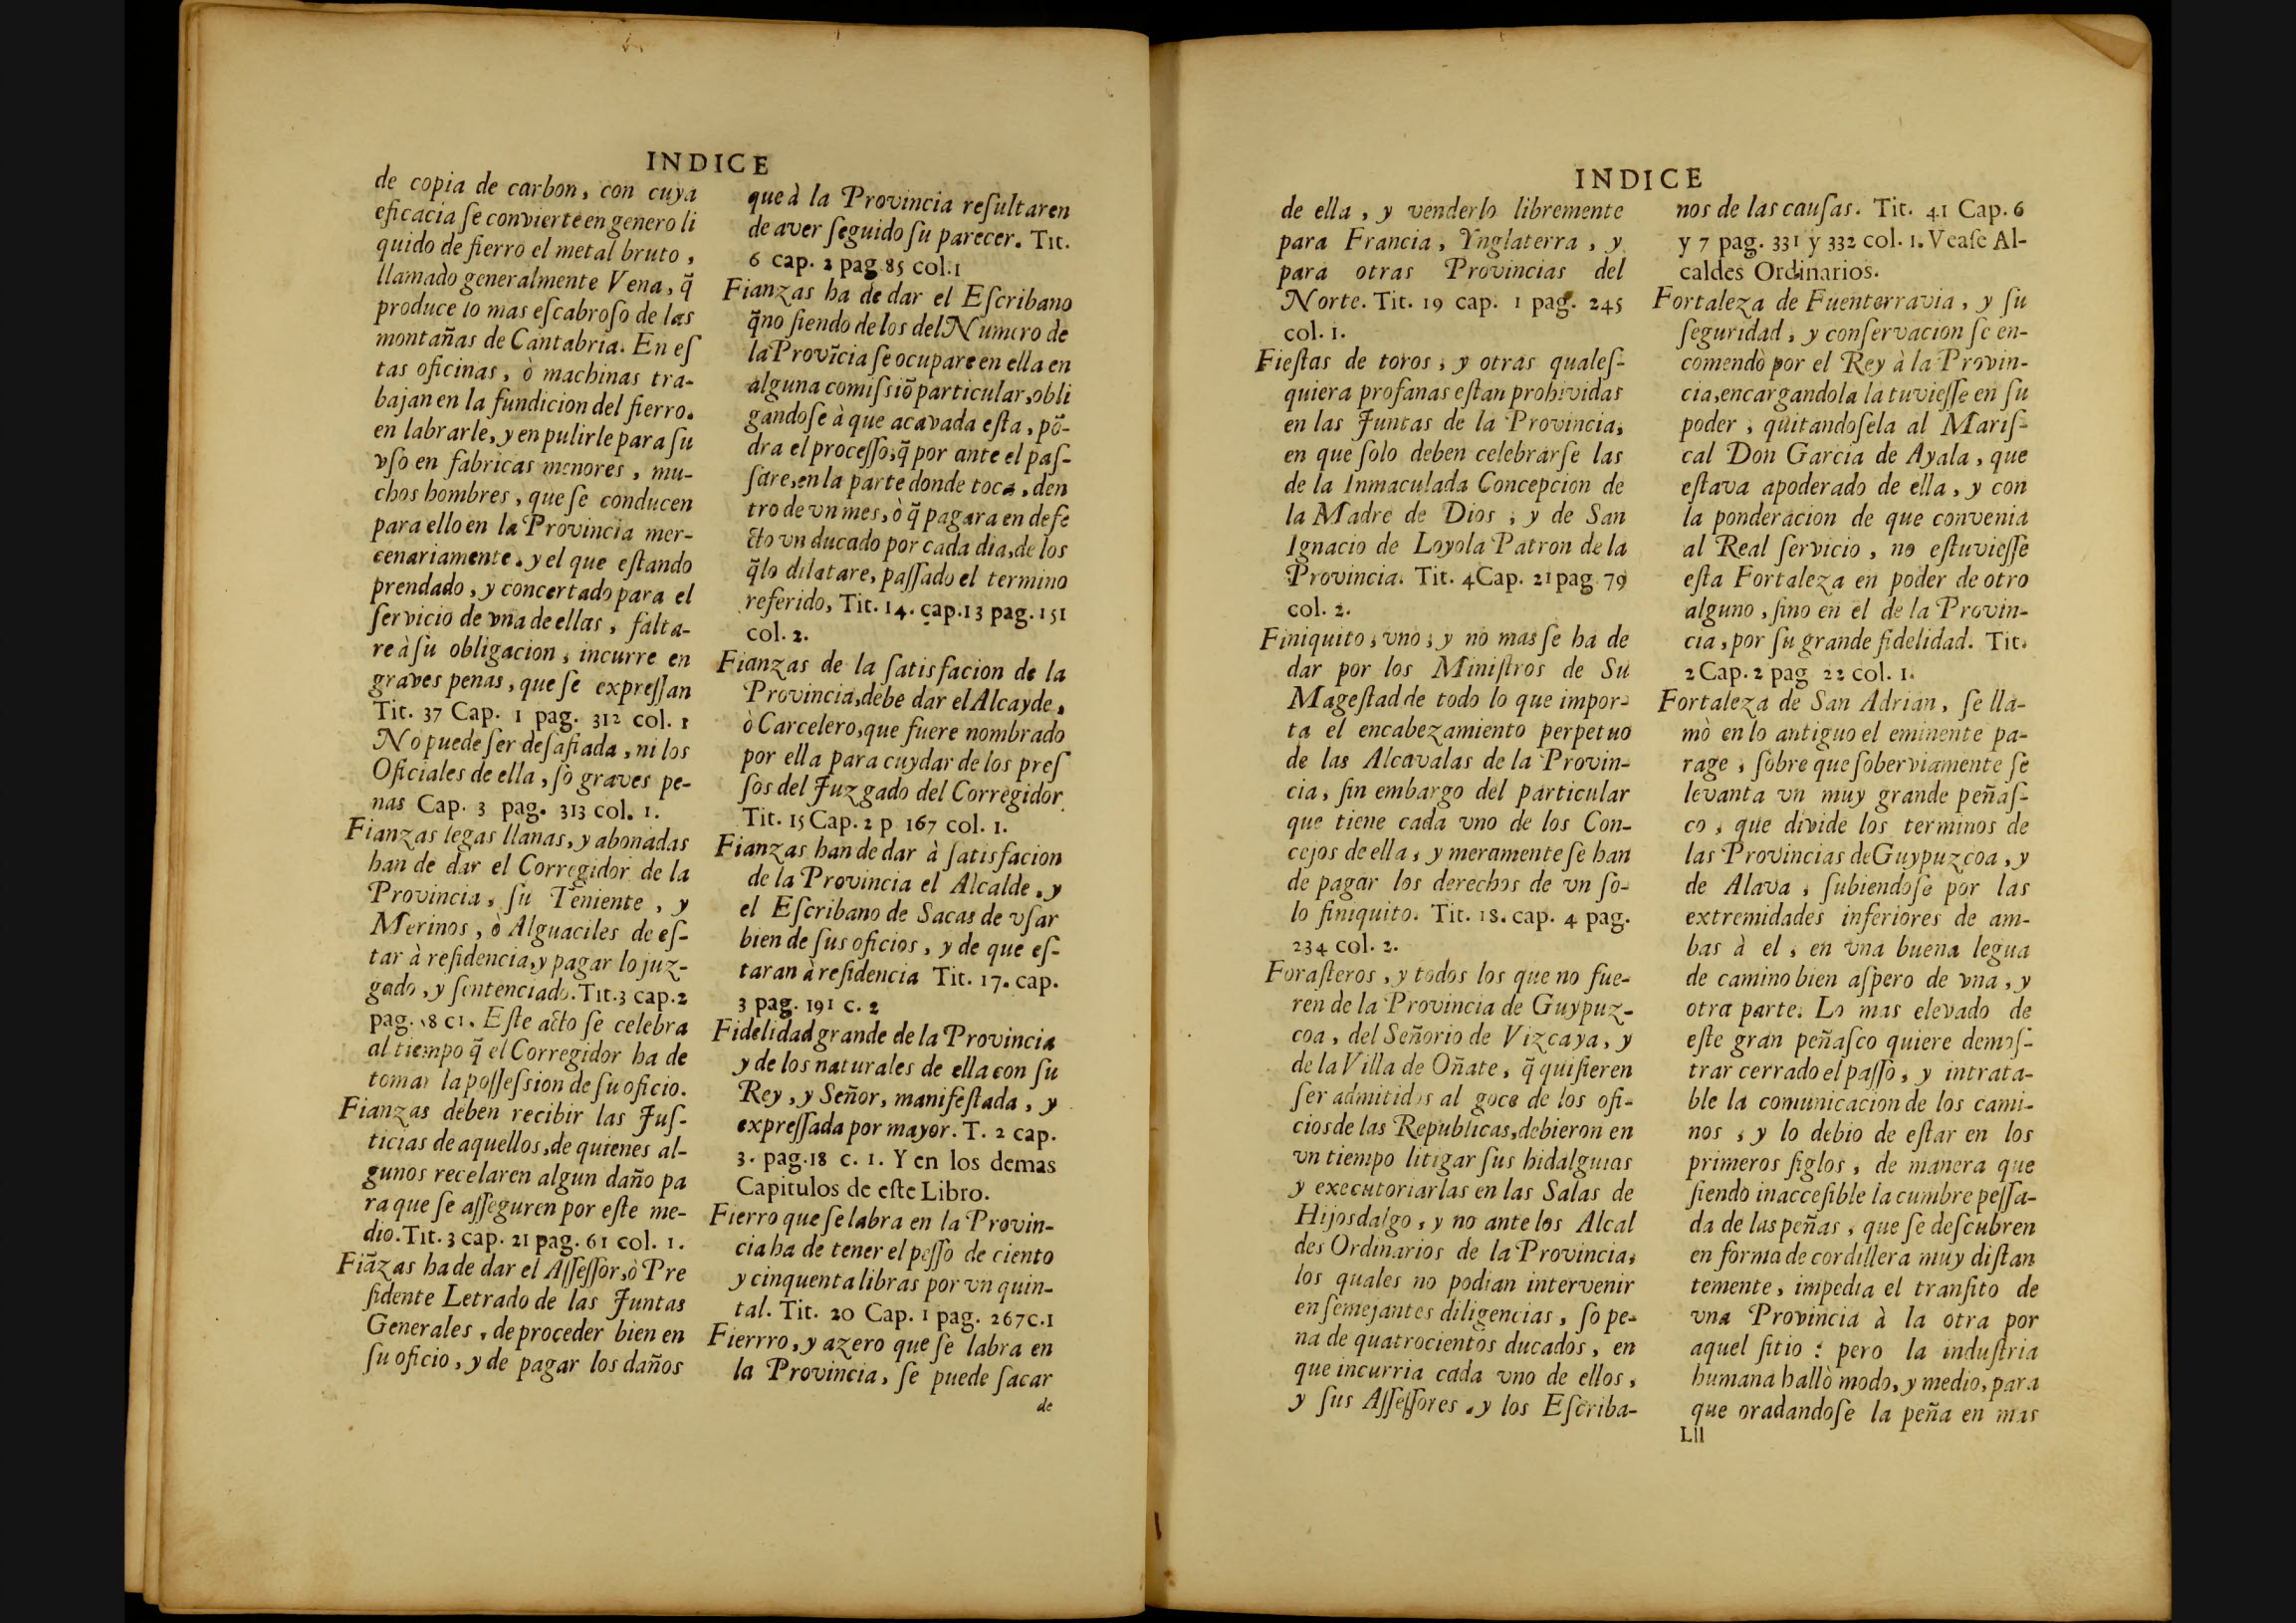 INDICE
de copia de carbon, con cuya
eficacia ſe convierte en genero li
quido de fierro el metal bruto,
llamado generalmente Vena, q̃
produce lo mas eſcabroſo de las
montañas de Cantabria. En eſ
tas oficinas, ò machinas tra-
bajan en la fundicion del fierro.
en labrarle, y en pulirle para ſu
vſo en fabricas menores, mu-
chos hombres, que ſe conducen
para ello en la Provincia mer-
cenariamente. y el que eſtando
prendado, y concertado para el
ſervicio de vna de ellas, falta-
re à ſu obligacion, incurre en
graves penas, que ſe expreſſan
Tit. 37 Cap. 1 pag. 312 col. 1
No puede ſer deſafiada, ni los
Oficiales de ella, ſò graves pe-
nas Cap. 3 pag. 313 col. 1.
Fianzas legas llanas, y abonadas
han de dar el Corregidor de la
Provincia, ſu Teniente, y
Merinos, ò Alguaciles de eſ-
tar à reſidencia, y pagar lo juz-
gado, y ſentenciado. Tit. 3 cap. 2
pag. 8 c1. Eſte acto ſe celebra
al tiempo q̃ el Corregidor ha de
tomar la poſſeſsion de ſu oficio.
Fianzas deben recibir las Juſ-
ticias de aquellos, de quienes al-
gunos recelaren algun daño pa
ra que ſe aſſeguren por eſte me-
dio. Tit. 3 cap. 21 pag. 61 col. 1.
Fiãzas ha de dar el Aſſeſſor, ò Pre
ſidente Letrado de las Juntas
Generales, de proceder bien en
ſu oficio, y de pagar los daños
que à la Provincia reſultaren
de aver ſeguido ſu parecer. Tit.
6 cap. 2 pag. 85 col. 1
Fianzas ha de dar el Eſcribano
q̃ no ſiendo de los del Numero de
la Provĩcia ſe ocupare en ella en
alguna comiſsiõ particular, obli
gandoſe à que acavada eſta, põ-
dra el proceſſo, q̃ por ante el paſ-
ſare, en la parte donde toca, den
tro de vn mes, ò q̃ pagara en defe
cto vn ducado por cada dia, de los
q̃ lo dilatare, paſſado el termino
referido, Tit. 14. cap. 13 pag. 151
col. 2.
Fianzas de la ſatisfacion de la
Provincia, debe dar el Alcayde,
ò Carcelero, que fuere nombrado
por ella para cuydar de los preſ
ſos del Juzgado del Corregidor.
Tit. 15 Cap. 2 p 167 col. 1.
Fianzas han de dar à ſatisfacion
de la Provincia el Alcalde, y
el Eſcribano de Sacas de vſar
bien de ſus oficios, y de que eſ-
taran à reſidencia Tit. 17. cap.
3 pag. 191 c. 2
Fidelidad grande de la Provincia
y de los naturales de ella con ſu
Rey, y Señor, manifeſtada, y
expreſſada por mayor. T. 2 cap.
3. pag. 18 c. 1. Y en los demas
Capitulos de eſte Libro.
Fierro que ſe labra en la Provin-
cia ha de tener el peſſo de ciento
y cinquenta libras por vn quin-
tal. Tit. 20 Cap. 1 pag. 267 c. 1
Fierrro, y azero que ſe labra en
la Provincia, ſe puede ſacar
de
INDICE
de ella, y venderlo libremente
para Francia, Ynglaterra, y
para otras Provincias del
Norte. Tit. 19 cap. 1 pag. 245
col. 1.
Fieſtas de toros, y otras qualeſ-
quiera profanas eſtan prohividas
en las Juntas de la Provincia,
en que ſolo deben celebrarſe las
de la Inmaculada Concepcion de
la Madre de Dios, y de San
Ignacio de Loyola Patron de la
Provincia. Tit. 4 Cap. 21 pag 79
col. 2.
Finiquito, vno, y no mas ſe ha de
dar por los Miniſtros de Su
Mageſtad de todo lo que impor-
ta el encabezamiento perpetuo
de las Alcavalas de la Provin-
cia, ſin embargo del particular
que tiene cada vno de los Con-
cejos de ella, y meramente ſe han
de pagar los derechos de vn ſo-
lo finiquito. Tit. 18. cap. 4 pag.
234 col. 2.
Foraſteros, y todos los que no fue-
ren de la Provincia de Guypuz-
coa, del Señorio de Vizcaya, y
de la Villa de Oñate, q̃ quiſieren
ſer admitidos al goce de los ofi-
cios de las Republicas, debieron en
vn tiempo litigar ſus hidalguias
y executoriarlas en las Salas de
Hijosdalgo, y no ante los Alcal
des Ordinarios de la Provincia,
los quales no podian intervenir
en ſemejantes diligencias, ſo pe-
na de quatrocientos ducados, en
que incurria cada vno de ellos,
y ſus Aſſeſſores, y los Eſcriba-
nos de las cauſas. Tit. 41 Cap. 6
y 7 pag. 331 y 332 col. 1. Veaſe Al-
caldes Ordinarios.
Fortaleza de Fuenterravia, y ſu
ſeguridad, y conſervacion ſe en-
comendò por el Rey à la Provin-
cia, encargandola la tuvieſſe en ſu
poder, quitandoſela al Mariſ-
cal Don Garcia de Ayala, que
eſtava apoderado de ella, y con
la ponderacion de que convenia
al Real ſervicio, no eſtuvieſſe
eſta Fortaleza en poder de otro
alguno, ſino en el de la Provin-
cia, por ſu grande fidelidad. Tit.
2 Cap. 2 pag 22 col. 1.
Fortaleza de San Adrian, ſe lla-
mò en lo antiguo el eminente pa-
rage, ſobre que ſoberviamente ſe
levanta vn muy grande peñaſ-
co, que divide los terminos de
las Provincias de Guypuzcoa, y
de Alava, ſubiendoſe por las
extremidades inferiores de am-
bas à el, en vna buena legua
de camino bien aſpero de vna, y
otra parte. Lo mas elevado de
eſte gran peñaſco quiere demoſ-
trar cerrado el paſſo, y intrata-
ble la comunicacion de los cami-
nos, y lo debio de eſtar en los
primeros ſiglos, de manera que
ſiendo inacceſible la cumbre peſſa-
da de las peñas, que ſe deſcubren
en forma de cordillera muy diſtan
temente, impedia el tranſito de
vna Provincia à la otra por
aquel ſitio: pero la induſtria
humana hallò modo, y medio, para
que oradandoſe la peña en mas
Lll